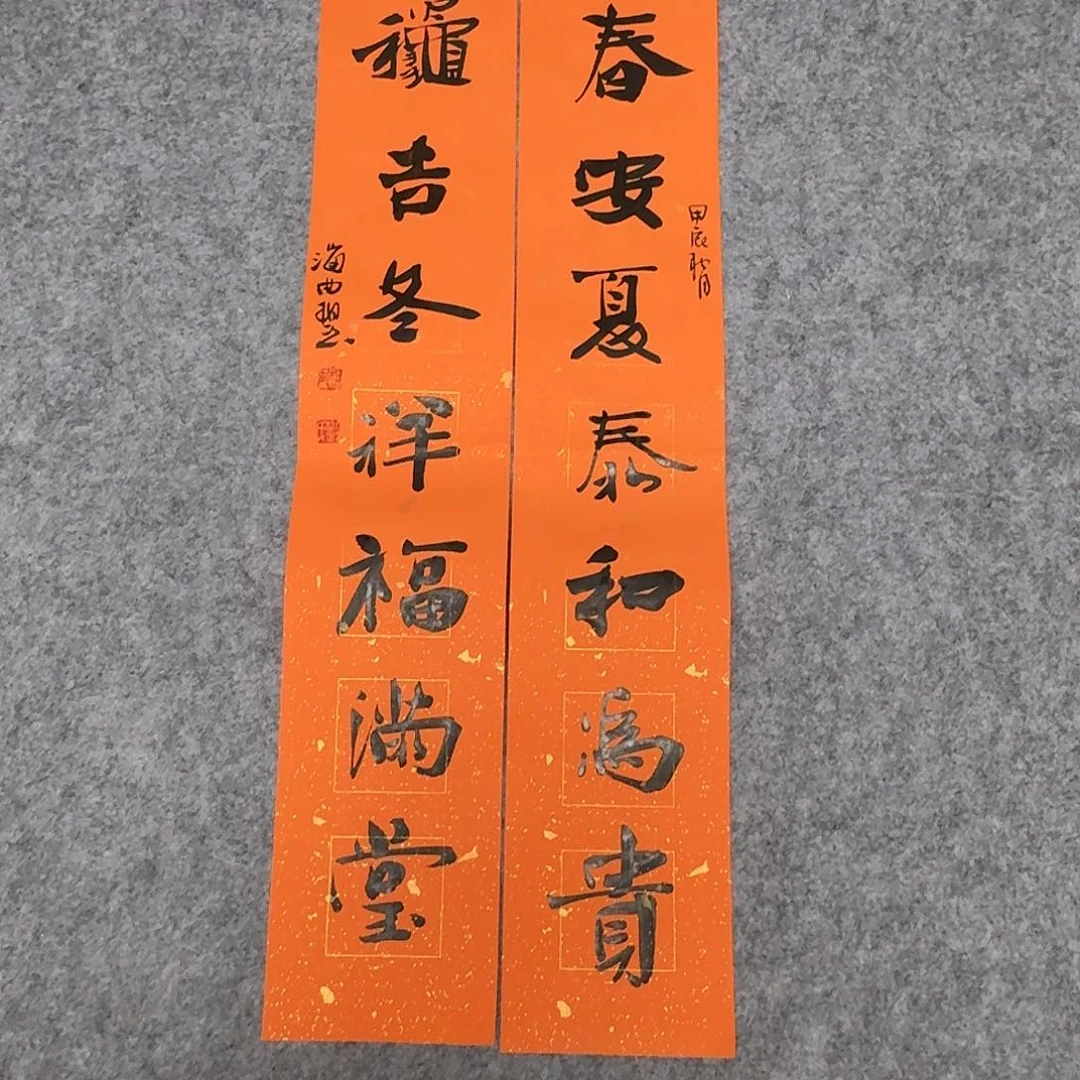 甲辰秋月
春安夏泰和為貴
龝吉冬祥福滿堂
海曲